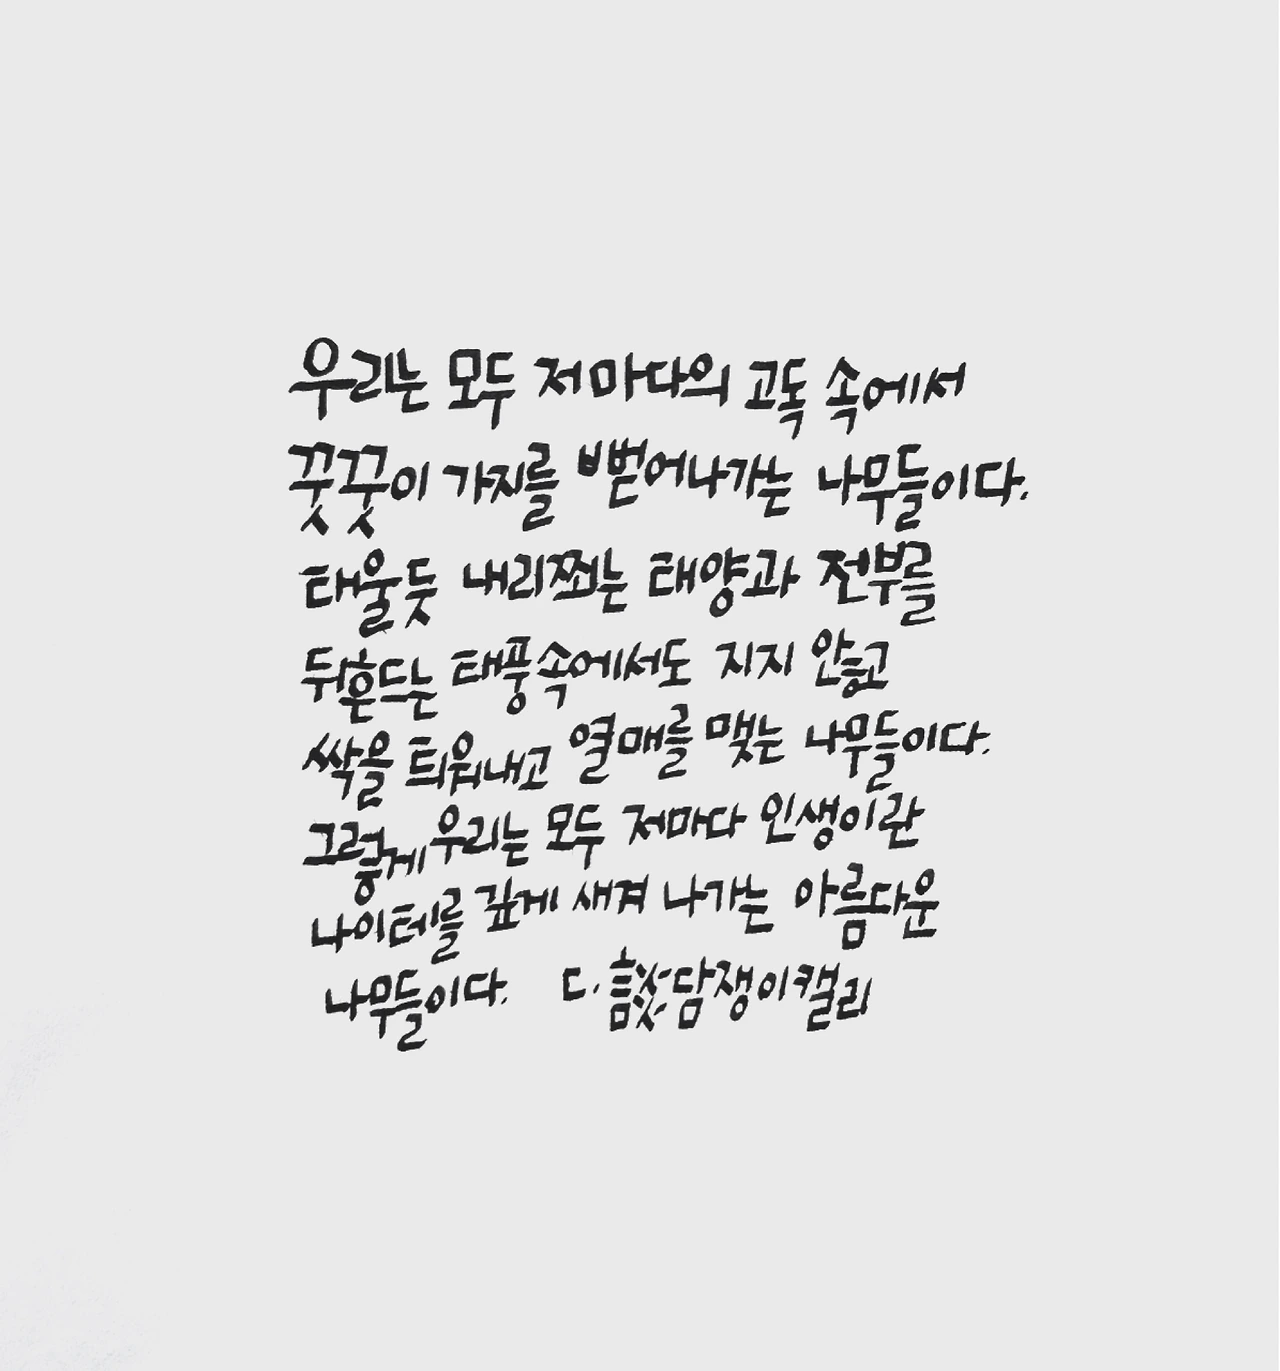 우리는 모두 저마다의 고독 속에서
꿋꿋이 가지를 뻗어나가는 나무들이다.
태울듯 내리쬐는 태양과 전부를
뒤흔드는 태풍속에서도 지지 않고
싹을 틔워내고 열매를 맺는 나무들이다.
그렇게 우리는 모두 저마다 인생이란
나이테를 깊게 새겨 나가는 아름다운
나무들이다. 담쟁이캘리